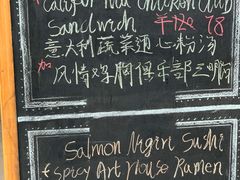 California Chicken Club
Sandwich ￥120 78
意大利蔬菜通心粉汤
加风情鸡胸俱乐部三明治
Salmon Nigiri Sushi
Spicy Art House Ramen